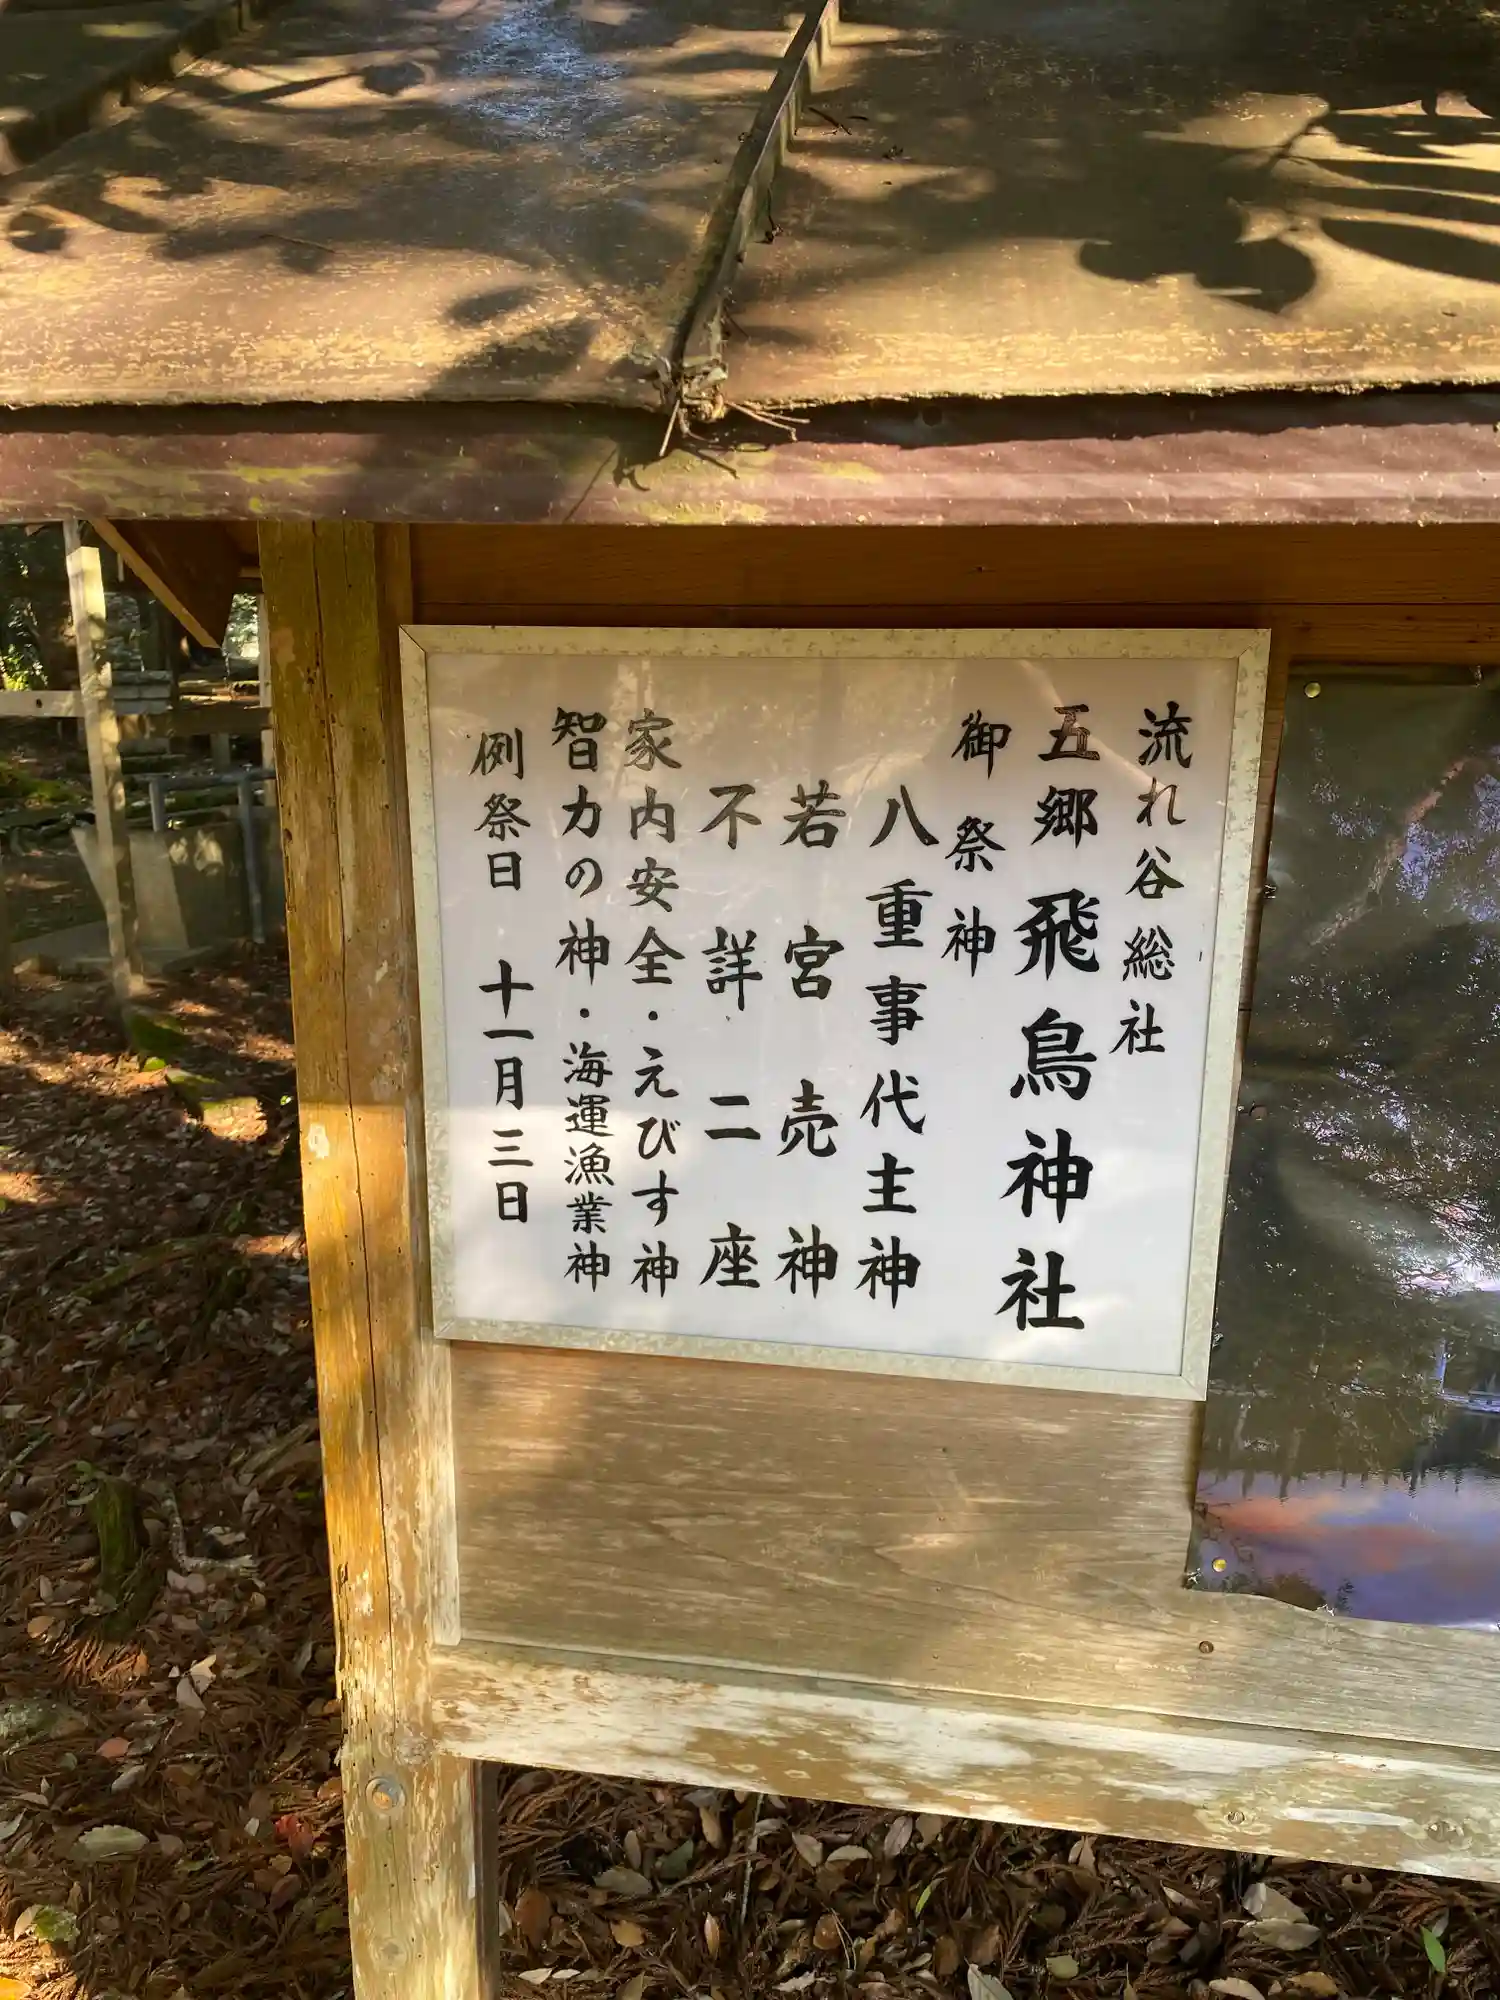 流れ谷総社
五郷飛鳥神社
御祭神
八重事代主神
若宮売神
不詳二座
家内安全・えびす神
智力の神・海運漁業神
例祭日 十一月三日